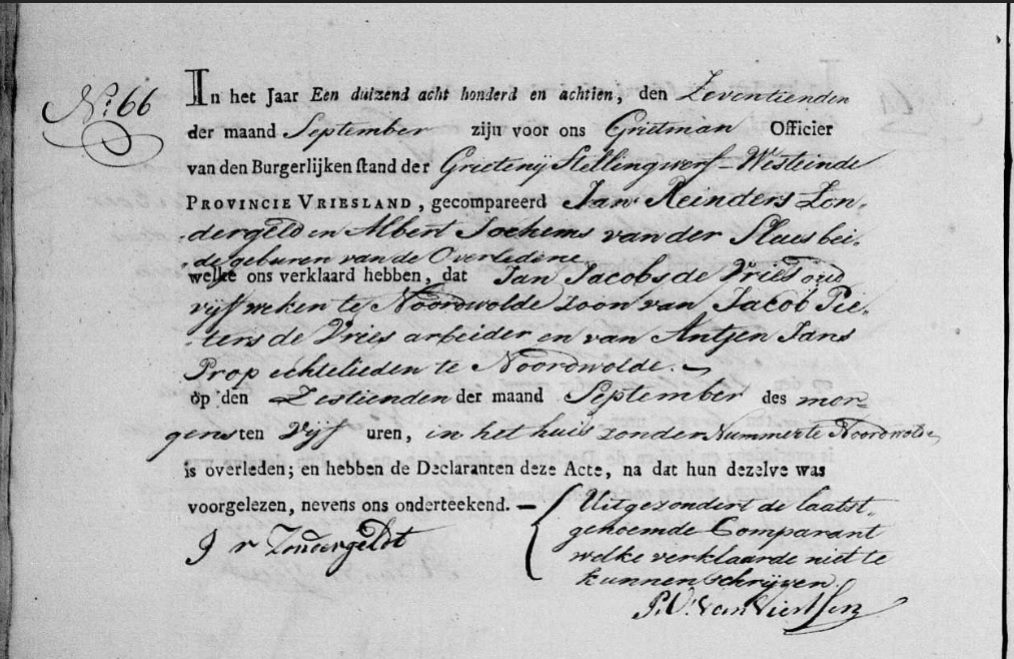 No. 66
In het Jaar Een duizend acht honderd en achtien, den Zeventienden
der maand September zijn voor ons Grietman Officier
van den Burgerlijken stand der Grietenij Stellingwerf-Westeinde
PROVINCIE VRIESLAND, gecompareerd Jan Reinders Zon-
dergeld en Albert Jochems van der Sluis bei-
de geburen van de Overledene
welke ons verklaard hebben, dat Jan Jacobs de Vries oud
vijf weken te Noordwolde zoon van Jacob Pie-
ters de Vries arbeider en van Antjen Jans
Prop echtelieden te Noordwolde.
op den Zestienden der maand September des mor-
gens ten Vijf uren, in het huis zonder Nummer te Noordwolde
is overleden; en hebben de Declaranten deze Acte, na dat hun dezelve was
voorgelezen, nevens ons onderteekend. — Uitgezondert de laatst-
genoemde Comparant
welke verklaarde niet te
kunnen schrijven.
J r Zondergeldt